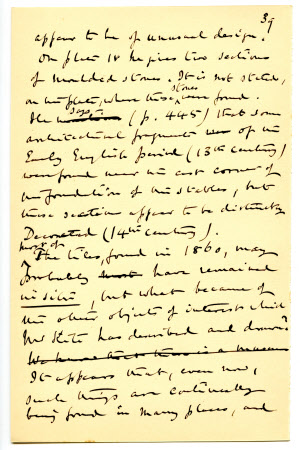 39
appear to be of unusual design.
On plate 18 he gives two sections
of moulded stones. It is not stated,
on the plate, where these stones were found.
He says (p. 445) that some
architectural fragments of the
Early English Period (13th century)
were found near the east corner of
the foundations of the stables, but
these sections appear to be distinctly
Decorated (14th century).
Most of the tiles, found in 1860, may
probably have remained
in situ, but what became of
the other objects of interest which
Mr has described and drawn?
We know that there is a museum
It appears that, even now,
such things are continually
being found in many places, and